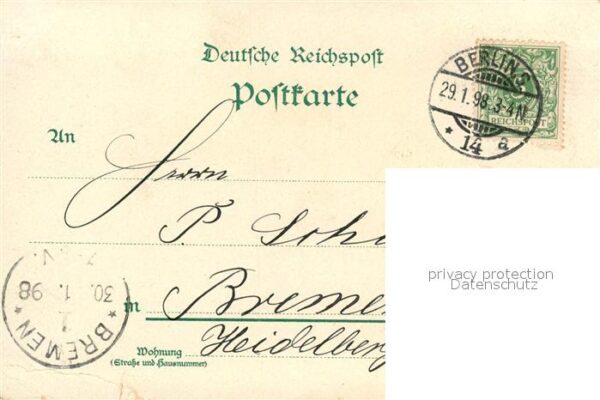 Deutsche Reichspost
Postkarte
BERLIN S
29.1.98.3-4N.
* 14 a
REICHSPOST
An
Herrn
P. Sch
in Breme
Heidelber
Wohnung
(Straße und Hausnummer)
* BREMEN *
1
30. 1. 98
privacy protection
Datenschutz